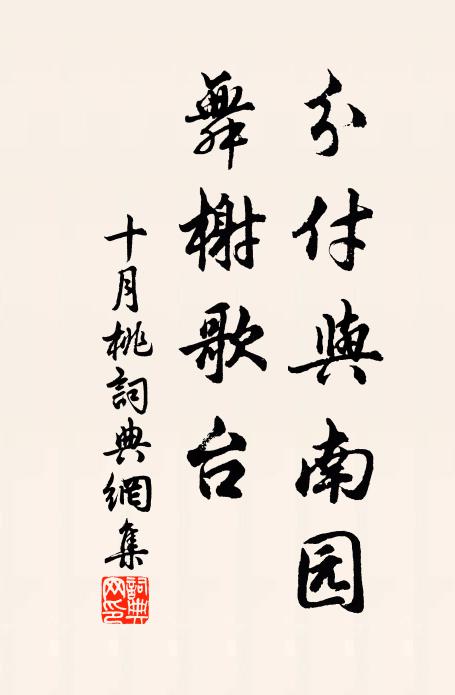 分付與南园
舞榭歌台
十月桃詞典網集
詞典网印